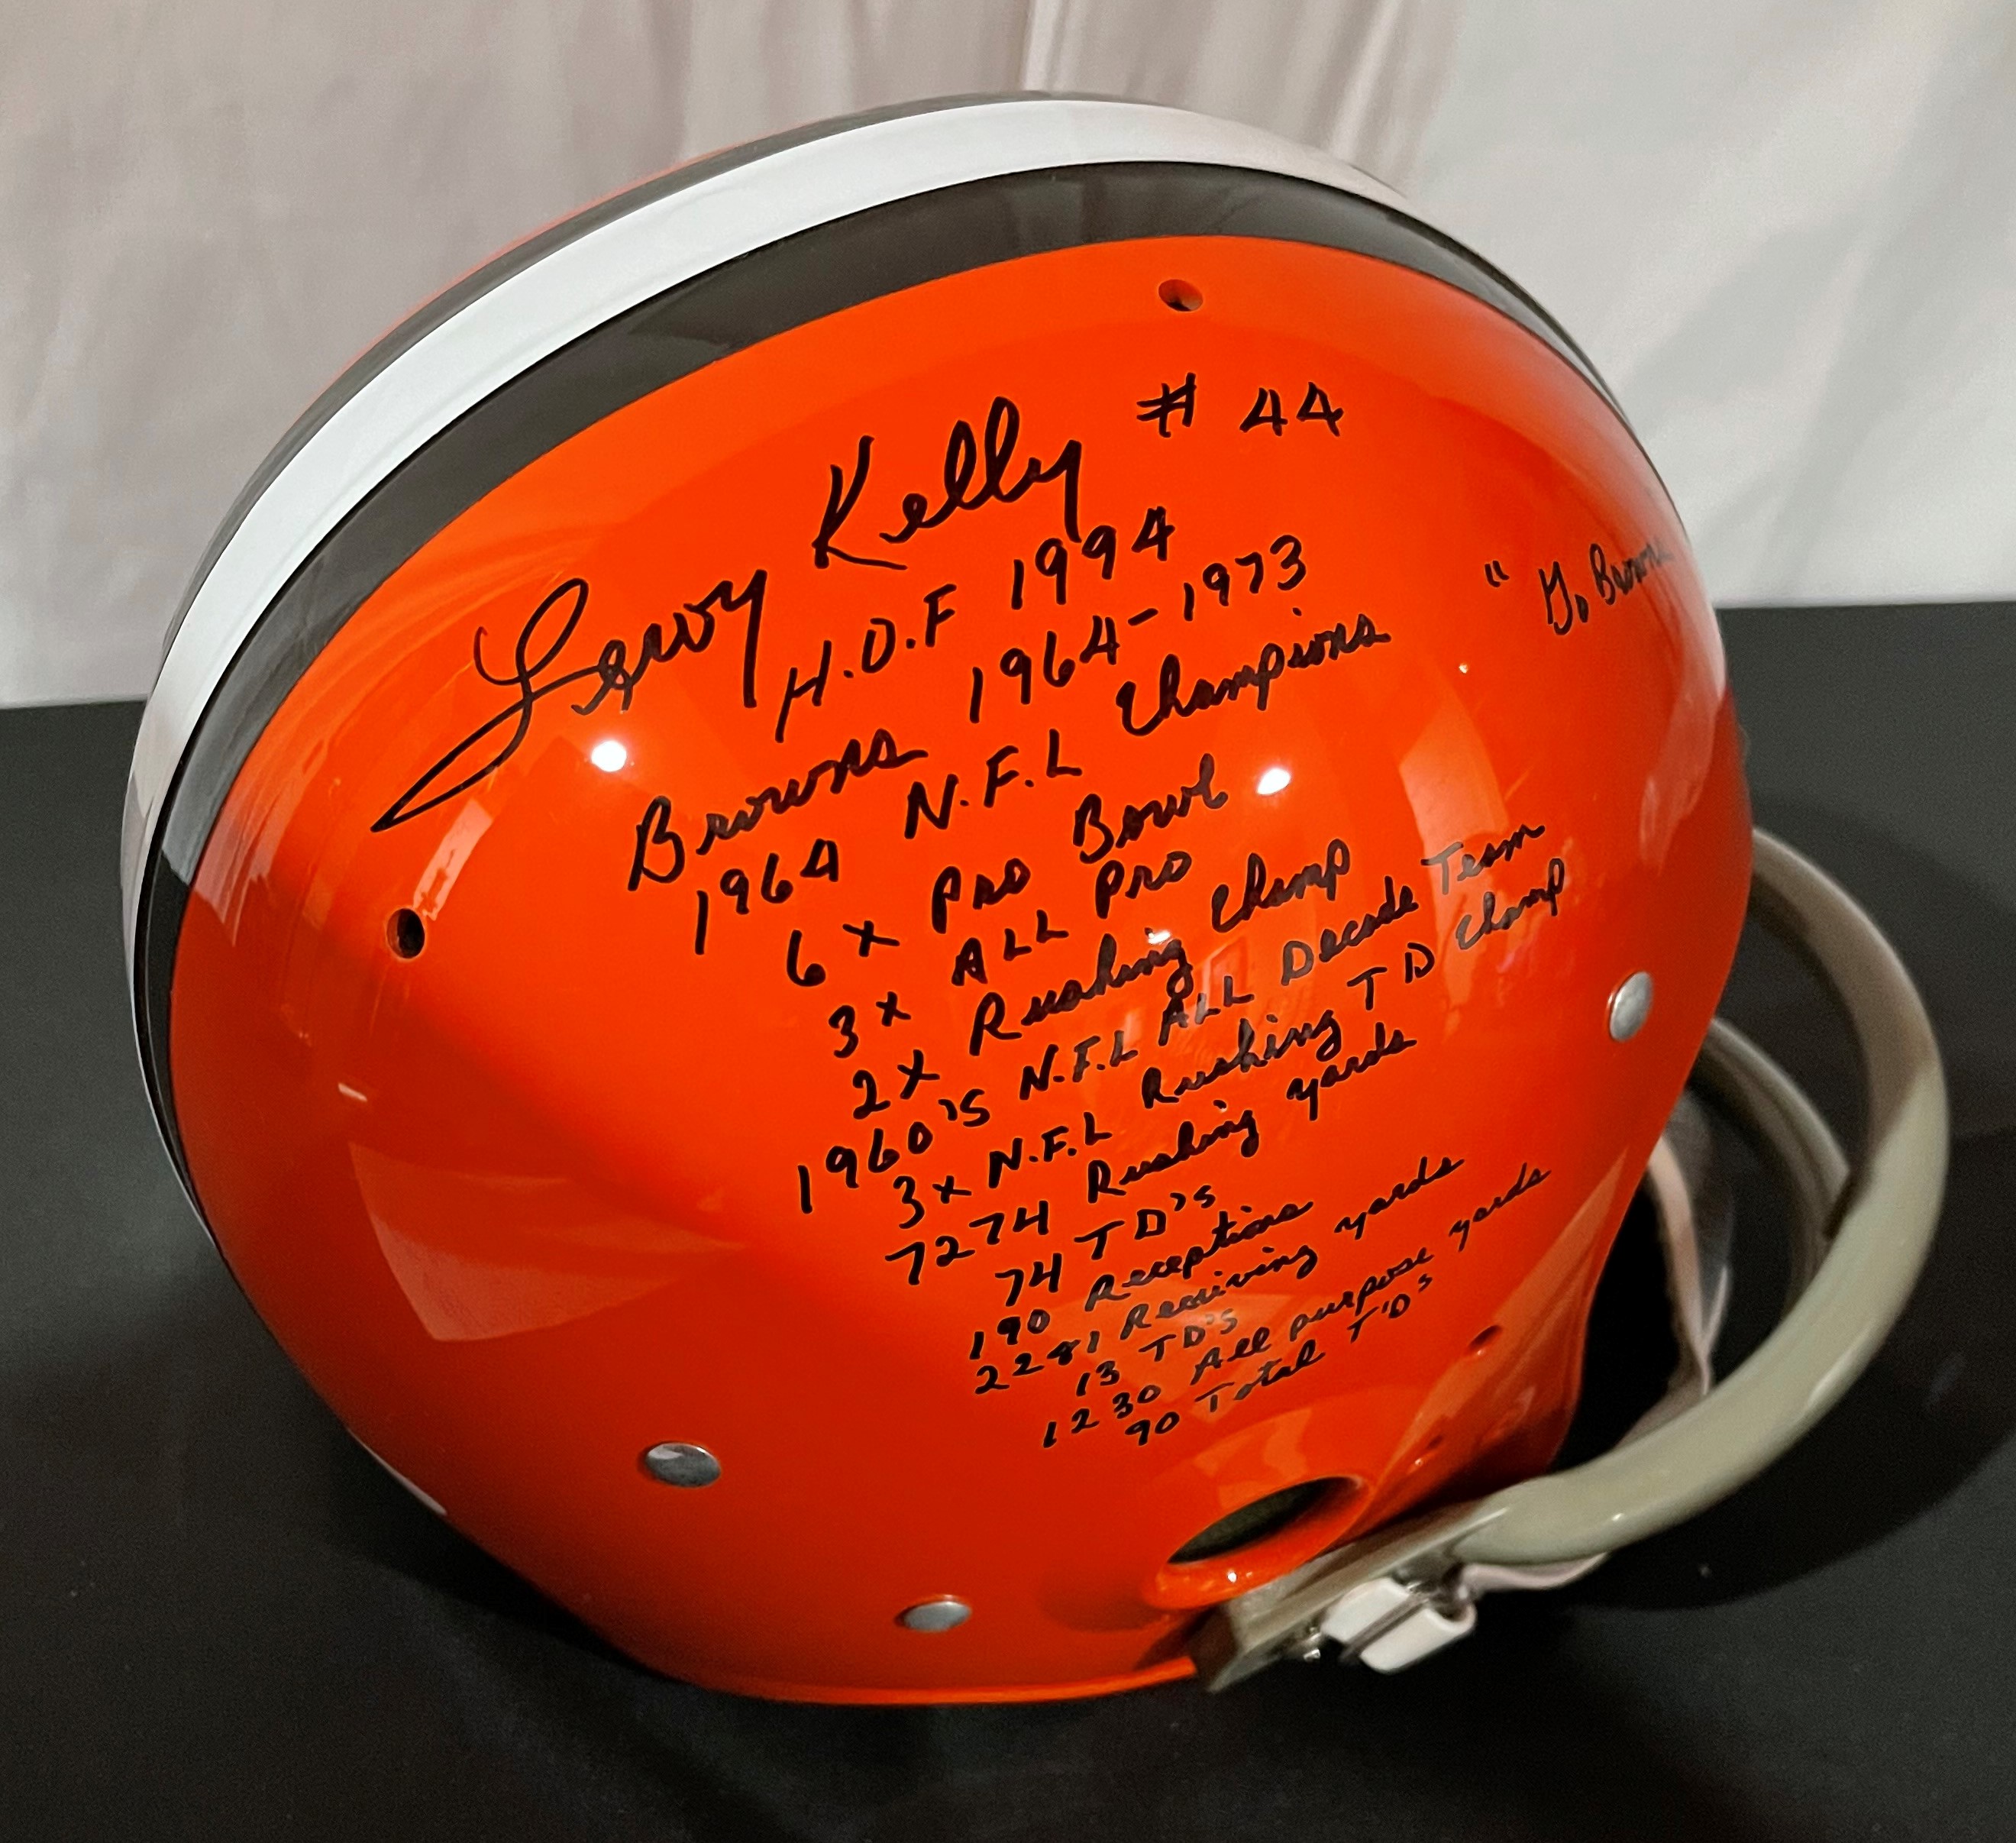 Leroy Kelly # 44
H.O.F 1994
Browns 1964-1973
1964 N.F.L Champions
6 x Pro Bowl
3x ALL Pro
2x Rushing Champ
1960's N.F.L ALL Decade Team
3x N.F.L Rushing TD Champ
7274 Rushing yards
74 TD's
190 Receptions
2281 Receiving yards
13 TD's
1230 All purpose yards
90 Total T'D's
" Go Browns